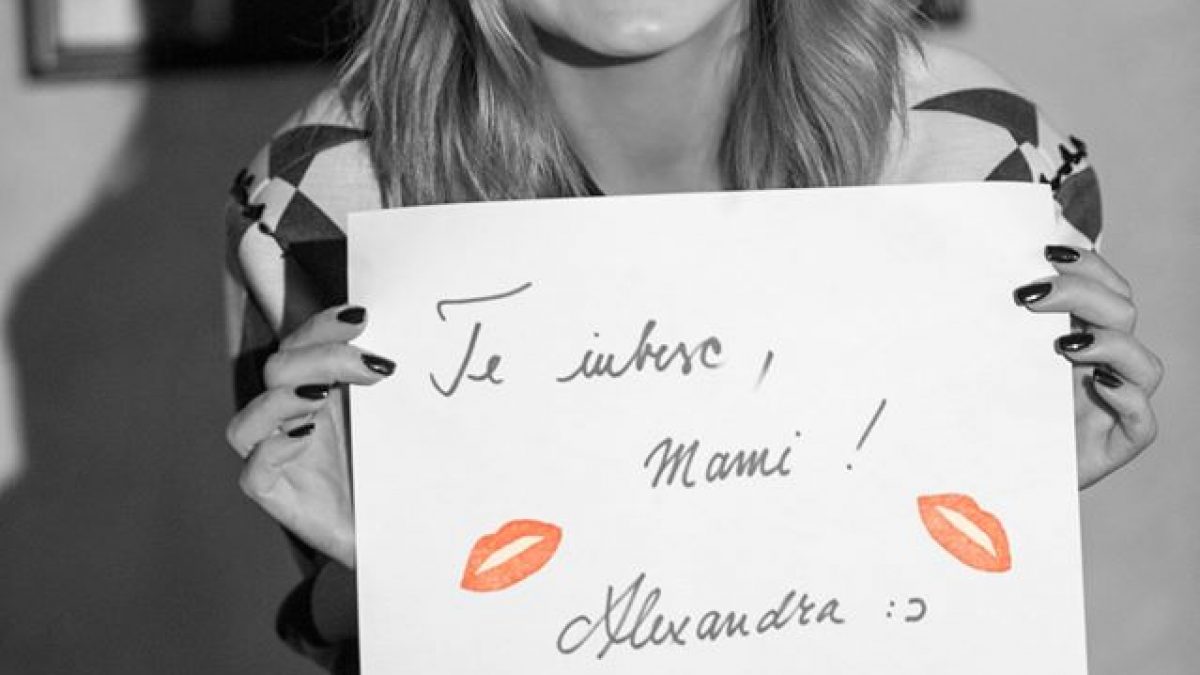 Te iubesc,
Mami!
Alexandra :⊃